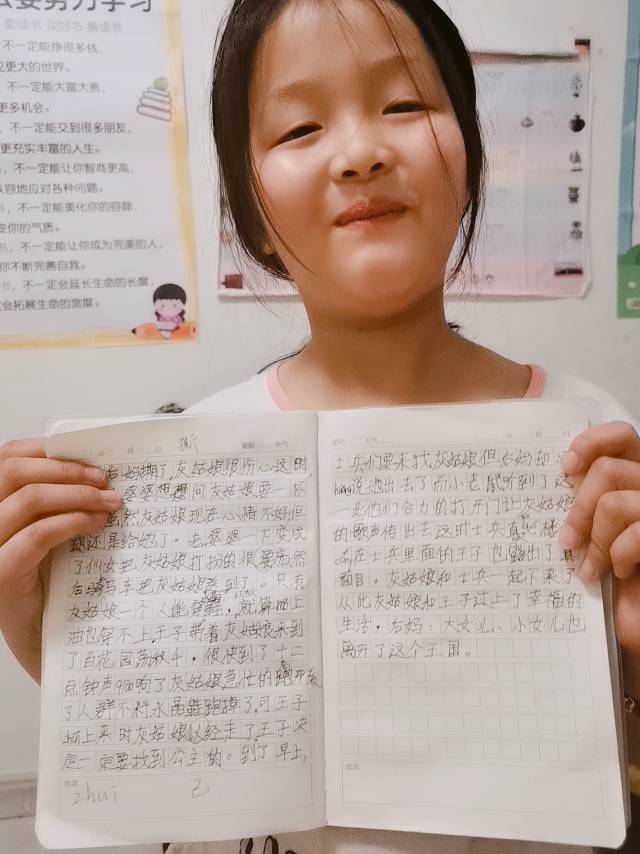 么要努力学习
勤读书 读好书 善读书
不一定能挣很多钱,
见更大的世界。
不一定能大富大贵,
更多机会。
不一定能交到很多朋友,
更充实丰富的人生。
书,不一定能让你智商更高,
以容地应对各种问题。
书,不一定能美化你的容颜,
变你的气质。
书,不一定能让你成为完美的人,
你不断完善自我。
书,不一定会延长生命的长度,
定会拓展生命的宽度。
月 日 撕 星期 天气
后妈撕了,灰姑娘很伤心这时
婆婆想想问灰姑娘要一杯
虽然灰姑娘现在心情不好,但
还是给她了。老婆婆一下变成
了仙女把灰姑娘打扮的很漂亮然
后骑马车把灰姑娘接到了。只点
灰姑娘一个人能穿鞋,就算加上
油也穿不上王子带着灰姑娘来到
了百花园荡秋千,很快到了十二
点钟声gang响了灰姑娘急忙的跑开放
了人群不料水晶鞋跑掉了,可王子
上来时灰姑娘以经走了,王子决
定一定要找到公主的。到了早上,
批语
zhui 己
星期 天气 年 月 日
士兵们要来找灰姑娘但后妈却
huang说她出去了而小老鼠听到了这
一些他们合力的打开门让灰姑娘
的歌声传出去这时士兵
在士兵里面的王子也露出了真
面目,灰姑娘和士兵一起下来了
从此灰姑娘和王子过上了幸福的
生活,后妈、大女儿、小女儿也
离开了这个王国。
批语